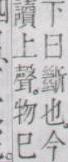 下日斷也今
讀上聲。物巳